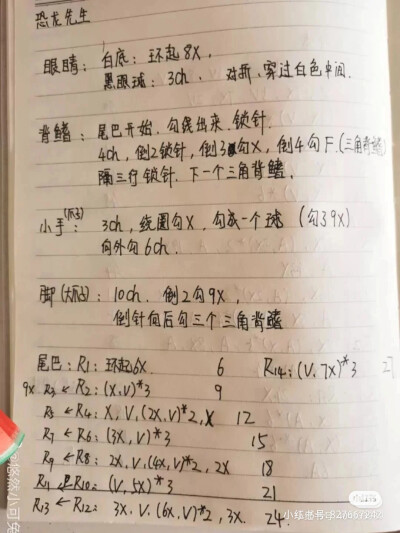 恐龙先生
眼睛：白底：环起8X，
黑眼球：3ch、对折、穿过白色中间.
背鳍：尾巴开始，勾绕出来、锁针.
4ch，倒2锁针，倒3勾X，倒4勾F.(三角背鳍)
隔三行锁针. 下一个三角背鳍.
小手(爪子)：3ch，绕圈勾X，勾成一个球 (勾39X)
向外勾6ch.
脚(大爪子)：10ch. 倒2勾9X，
倒针向后勾三个三角背鳍
尾巴：R1：环起6X. 6 R14：(V, 7X)*3 27
9X R3 ← R2：(X,V)*3 9
R5 ← R4：X, V, (2X,V)*2, X 12
R7 ← R6：(3X, V)*3 15
R9 ← R8：2X, V, (4X,V)*2, 2X 18
R11 ← R10：(V, 5X)*3 21
R13 ← R12：3X. V. (6X, V)*2, 3X. 24.